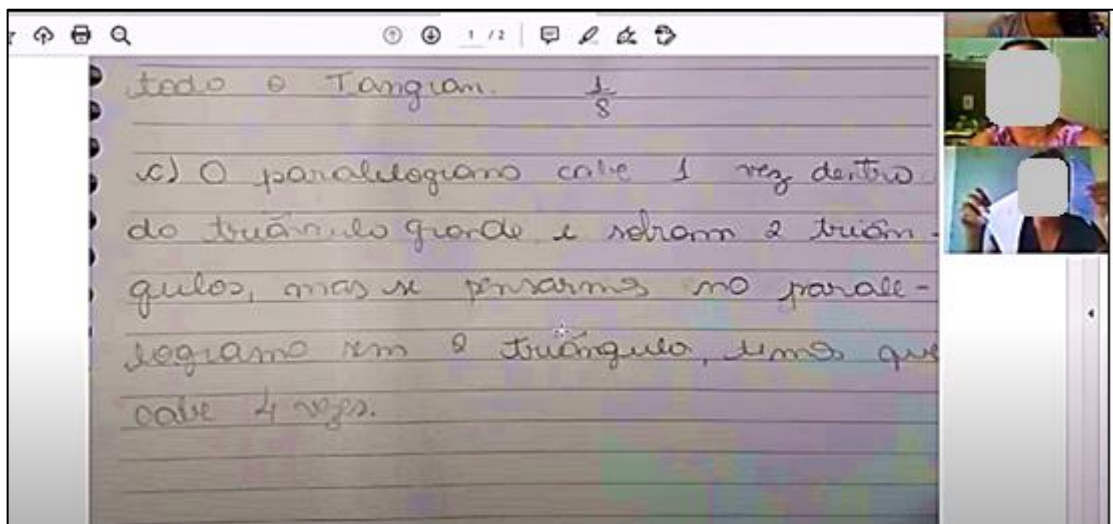 1 / 2
todo o Tangram. 1/8
c) O paralelogramo cabe 1 vez dentro
do triângulo grande e sobram 2 triân-
gulos, mas se pensarmos no parale-
logramo em 2 triângulo, temos que
cabe 4 vezes.